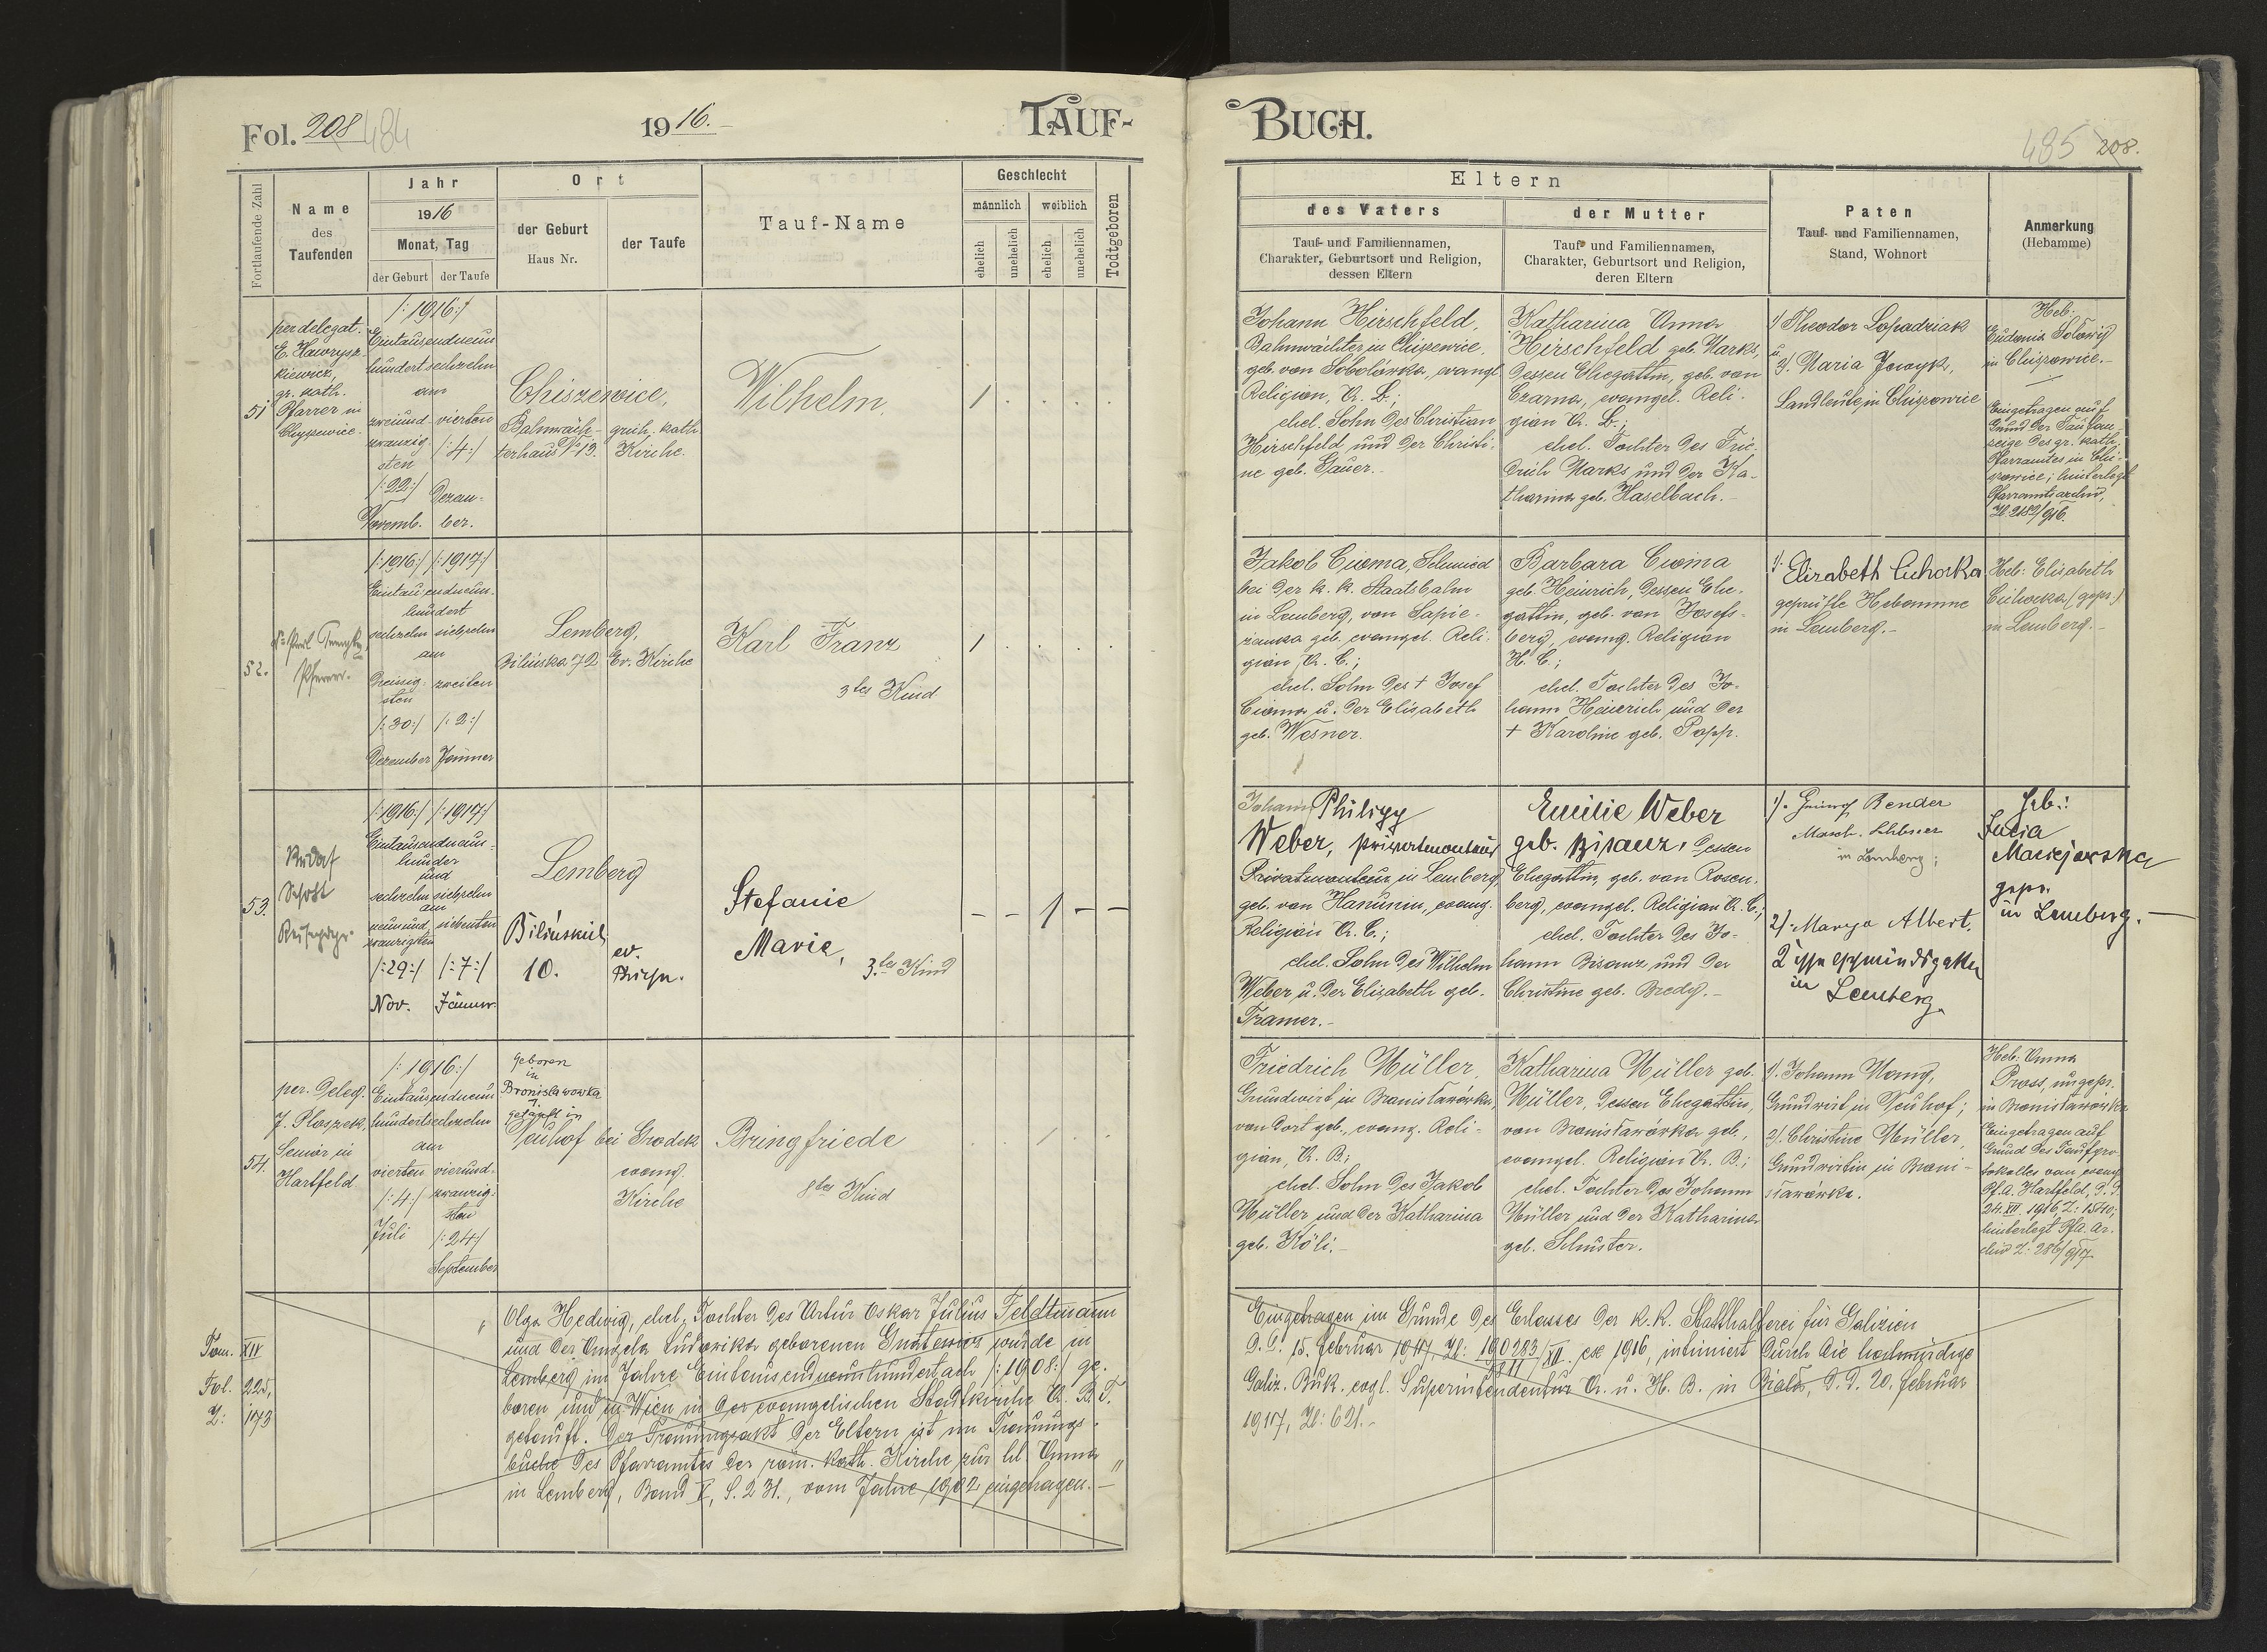 Fol. 208 484
1916.
TAUF-
Fortlaufende Zahl
Name
des
Taufenden
Jahr
1916
Monat, Tag
der Geburt
der Taufe
Ort
der Geburt
Haus Nr.
der Taufe
Tauf-Name
Geschlecht
männlich
weiblich
ehelich
unehelich
ehelich
unehelich
Todtgeboren
51
per delegat.
E. Hawrysz-
kiewicz,
gr. kath.
Pfarrer in
Chyszewice.
/:1916:/
Eintausendneun
hundertsechzehn
am
zweiund-
zwanzig-
sten
/:22:/
Novemb.
vierten
/:4:/
Dezem-
ber.
Chiszewice,
Bahnwäch-
terhaus No 13.
griech. kath.
Kirche.
Wilhelm.
1 . . . .
52.
Pfarrer.
/:1916:/ /:1917:/
Eintausendneun-
hundert
sechzehn siebzehn
am
dreissig-
sten
/:30:/
Dezember
zweiten
/:2:/
Jänner
Lemberg,
Bilinska 72
Ev. Kirche
Karl Franz
3tes Kind
1 . . . .
53.
Rudolf
/:1916:/ /:1917:/
Eintausendneun-
hundert
und
sechzehn siebzehn
am
neunund-
zwanzigsten
/:29:/
Nov.
siebenten
/:7:/
Jänner
Lemberg
10.
ev.
Kirche.
Stefanie
Marie,
3.tes Kind
- - 1 - -
54.
per. Deleg.
J. Ploszek
Senior in
Hartfeld
/:1916:/
Eintausendneun
hundertsechzehn
am
vierten
/:4:/
Juli
vierund-
zwanzig-
sten
/:24:/
September
geboren
in
Bronislawowka
getauft in
Neuhof bei Grodek
evang.
Kirche
Bringfriede
8tes Kind
. . 1 . .
Tom. XIV
Fol. 225,
Z: 173
„Olga Hedwig, ehel. Tochter des Artur Oskar Julius Feldtmann
und der Angela Ludowika geborenen wurde in
Lemberg im Jahre Eintausendneunhundertacht /:1908:/ ge-
boren und in Wien in der evangelischen Stadtkirche A. B.
getauft. Der Trauungsakt der Eltern ist im Trauungs-
buche des Pfarramtes der röm. kath. Kirche zur hl. Anna
in Lemberg, Band V, S. 231., vom Jahre 1902 eingetragen.—"
BUCH.
485 208.
Eltern
des Vaters
Tauf- und Familiennamen,
Charakter, Geburtsort und Religion,
dessen Eltern
der Mutter
Tauf- und Familiennamen,
Charakter, Geburtsort und Religion,
deren Eltern
Paten
Tauf- und Familiennamen,
Stand, Wohnort
Anmerkung
(Hebamme)
Johann Hirschfeld,
Bahnwächter in Chiszewice,
geb. von Sobolówka, evangl.
Religion, A. B.;
ehel. Sohn des Christian
Hirschfeld und der Christi-
ne geb. Gauer.-
Katharina Anna
Hirschfeld geb. Marks,
dessen Ehegattin, geb. von
Czarna, evangel. Reli-
gion A. B.;
ehel. Tochter des Frie-
drich Marks und der Ka-
tharina geb. Haselbach.-
1) Theodor Lopadziak
u.
2). Maria Jowyk,
Landleute in Chiszewice
Heb:
Eudonia Solowij
in Chiszewice.-
Eingetragen auf
Grund der Taufan-
zeige des gr. kath.
Pfarramtes in Chi-
szewice; hinterlegt
Pfarramtsarchiv,
Zl. 2189/916.
Jakob Cioma, Schmied
bei der k. k. Staatsbahn
in Lemberg, von Sapie-
zanka geb. evangel. Reli-
gion, A. C.;
ehel. Sohn des + Josef
Cioma u. der Elisabeth
geb. Wesner.
Barbara Cioma
geb. Heinrich, dessen Ehe-
gattin, geb. von Josefs-
berg, evang. Religion
H. C.;
ehel. Tochter des Jo-
hann Heinrich und der
+ Karoline geb. Popp.
1). Elizabeth Cichocka
geprüfte Hebamme
in Lemberg.-
Heb: Elisabeth
Cichocka (gepr.)
in Lemberg.-
Johann Philipp
Weber, Privatmonteur
Privatmonteur in Lemberg,
geb. von Hanunin, evang.
Religion A. C.;
ehel. Sohn des Wilhelm
Weber u. der Elizabeth geb.
Tramer.-
Emilie Weber
geb. Bisanz, dessen
Ehegattin, geb. von Rosen-
berg, evangel. Religion A. C.;
ehel. Tochter des Jo-
hann Bisanz und der
Christine geb. Bredy.-
1). Bender
in Lemberg;
2). Marya Albert.
in Lemberg.
Heb:
Lucia
Maciejowska
gepr.
in Lemberg.—
Friedrich Müller,
Grundwirt in Bronisławówka,
von dort geb., evang. Reli-
gion, A. B.;
ehel. Sohn des Jakob
Müller und der Katharina
geb. Köli.-
Katharina Müller geb.
Müller, dessen Ehegattin,
von Bronisławówka geb.,
evangel. Religion A. B.;
ehel. Tochter des Johann
Müller und der Katharina
geb. Schuster.
1). Johann Mang,
Grundwirt in Neuhof;
2). Christine Müller,
Grundwirtin in Broni-
sławówka.
Heb: Anna
Pross, ungepr.
in Bronisławówka
Eingetragen auf
Grund des Taufpro-
tokolles vom evang.
Pf. A. Hartfeld, d. d.
24.XII. 1916, Z: 1540;
hinterlegt Pfa. Ar-
chiv Z: 286/917.
Eingetragen im Grunde des Erlasses der k. k. Statthalterei für Galizien
d. d. 15. Februar 1917, Zl: 190283/1811/XII. ex 1916, intimiert durch die hochwürdige
Galiz. Buk. evgl. Superintendentur A. u. H. B. in Biala, d. d. 20. Februar
1917, Zl: 621.-